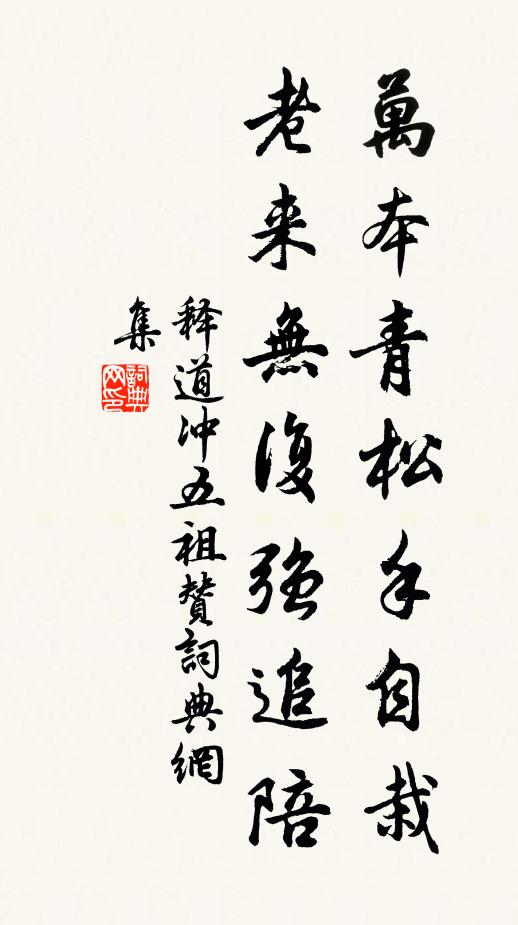 萬本青松手自栽
老来無復強追陪
释道冲五祖赞詞典網
集
詞典网印